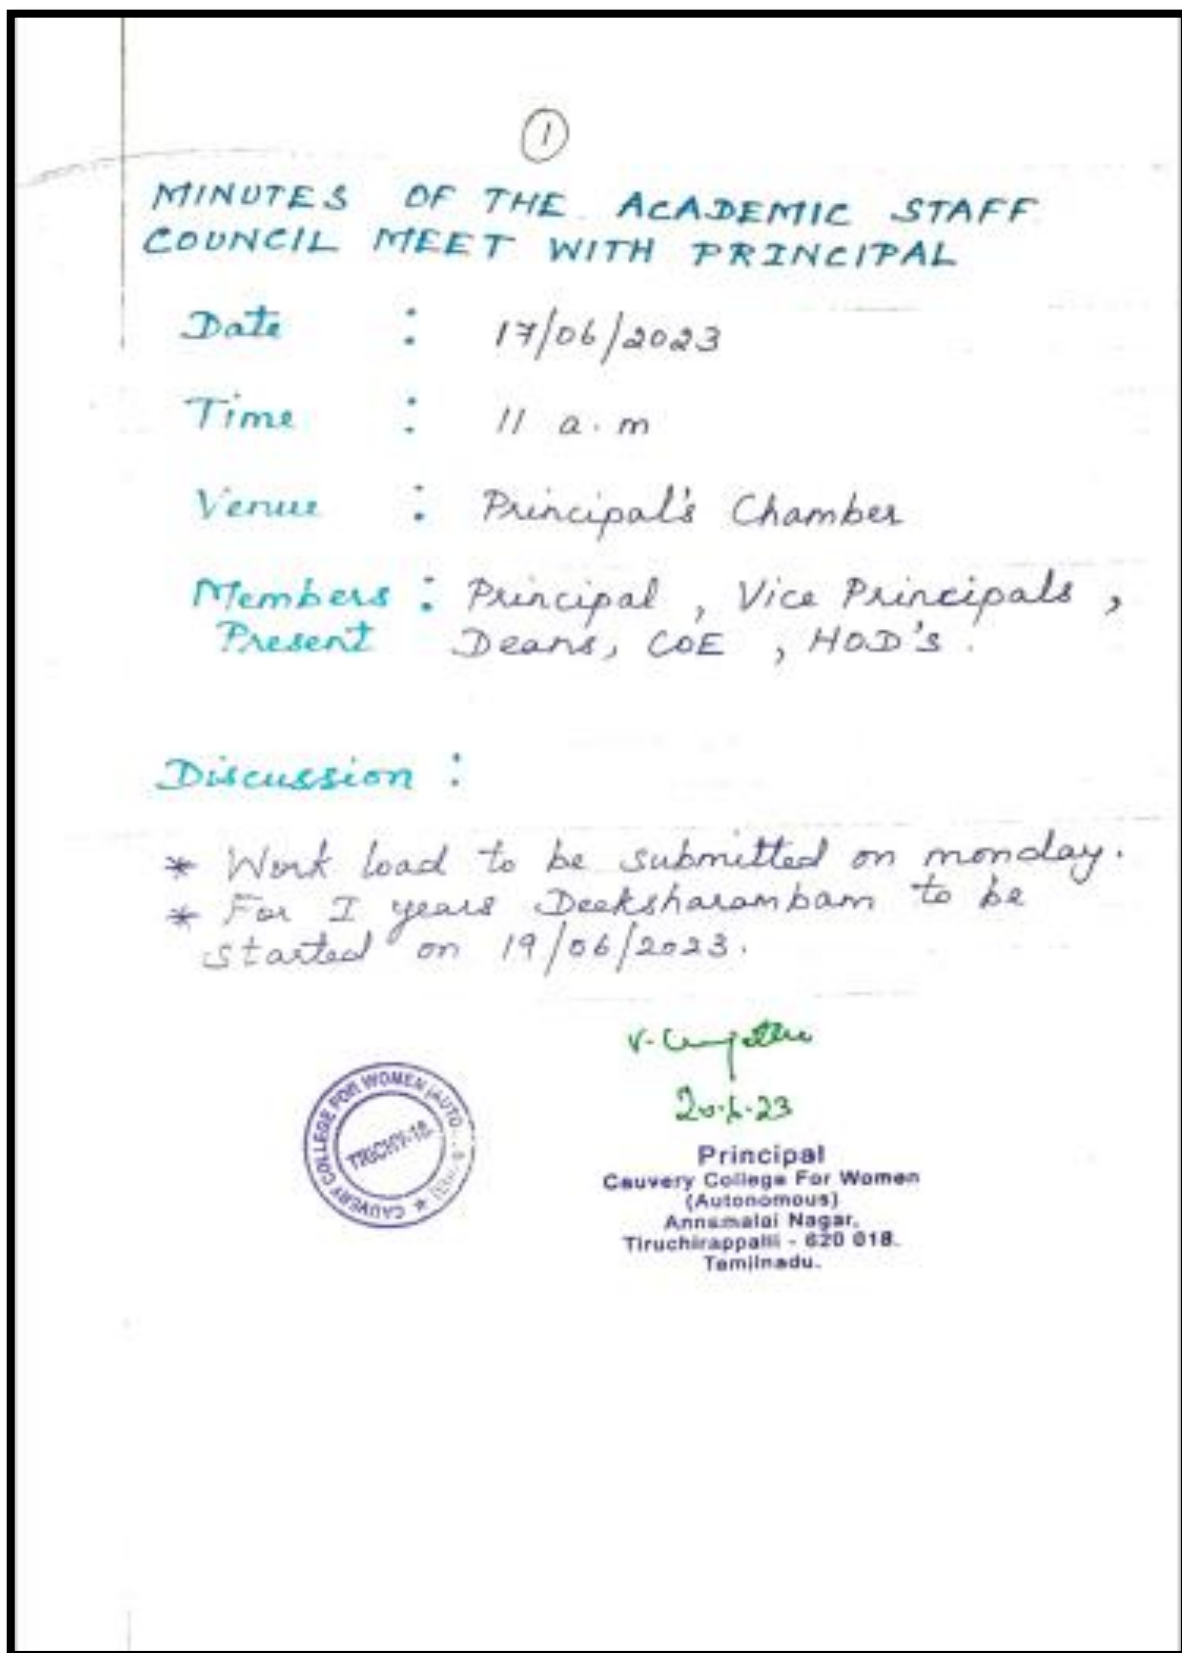 1
MINUTES OF THE ACADEMIC STAFF
COUNCIL MEET WITH PRINCIPAL
Date : 17/06/2023
Time : 11 a.m
Venue : Principal's Chamber
Members : Principal, Vice Principals,
Present Deans, COE, HOD's.
Discussion :
* Work load to be submitted on monday.
* For I years Deeksharambam to be
started on 19/06/2023.
20-6-23
CAUVERY COLLEGE FOR WOMEN
TRICHY-18.
Principal
Cauvery College For Women
(Autonomous)
Annamalai Nagar,
Tiruchirappalli - 620 018.
Tamilnadu.